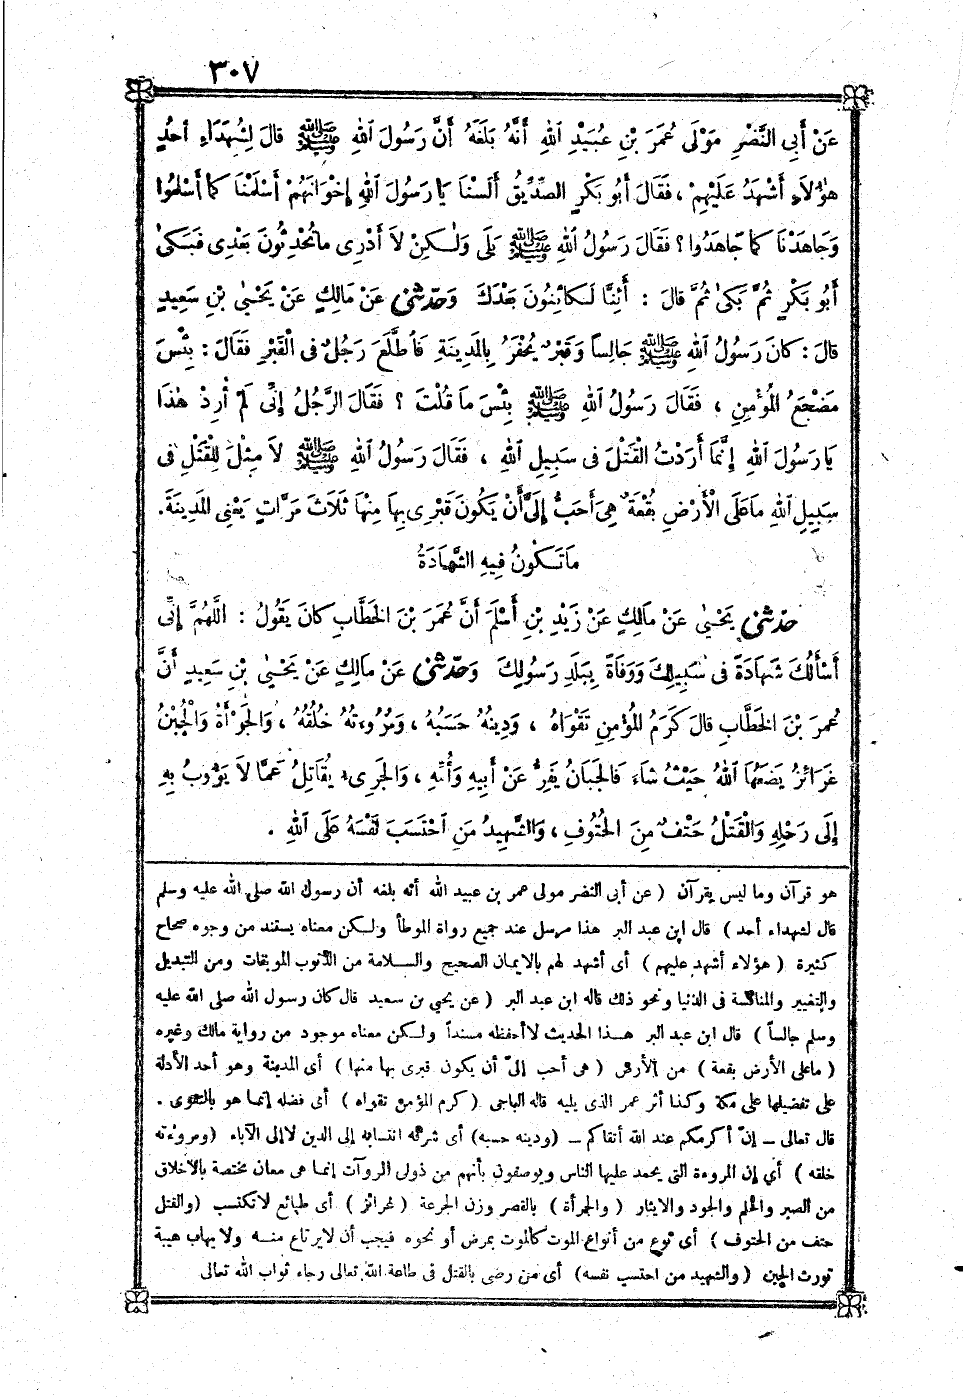 ٣٠٧
عَنْ أَبِى النَّضْرِ مَوْلَى عُمَرَ بْنِ عُبَيْدِ اللهِ أَنَّهُ بَلَغَهُ أَنَّ رَسُولَ اللهِ ﷺ قالَ لِشُهَدَاءِ أُحُدٍ
هٰؤُلَاءِ أَشْهَدُ عَلَيْهِمْ ، فَقَالَ أَبُو بَكْرٍ الصِّدِّيقُ أَلَسْنَا يَا رَسُولَ اللهِ إِخْوَانَهُمْ أَسْلَمْنَا كَمَا أَسْلَمُوا
وَجَاهَدْنَا كَمَا جَاهَدُوا ؟ فَقَالَ رَسُولُ اللهِ ﷺ بَلَى وَلٰكِنْ لاَ أَدْرِى مَا تُحْدِثُونَ بَعْدِى فَبَكَىٰ
أَبُو بَكْرٍ ثُمَّ بَكَىٰ ثُمَّ قالَ : أَئِنَّا لَكَائِنُونَ بَعْدَكَ وَحَدَّثَنِى عَنْ مَالِكٍ عَنْ يَحْيَىٰ بْنِ سَعِيدٍ
قالَ : كَانَ رَسُولُ اللهِ ﷺ جَالِساً وَقَبْرٌ يُحْفَرُ بِالْمَدِينَةِ فَاُطَّلَعَ رَجُلٌ فى الْقَبْرِ فَقَالَ : بِئْسَ
مَضْجَعُ الْمُؤْمِنِ ، فَقَالَ رَسُولُ اللهِ ﷺ بِئْسَ مَا قُلْتَ ؟ فَقَالَ الرَّجُلُ إِنِّى لَمْ أُرِدْ هٰذَا
يَا رَسُولَ اللهِ إِنَّمَا أَرَدْتُ الْقَتْلَ فى سَبِيلِ اللهِ ، فَقَالَ رَسُولُ اللهِ ﷺ لاَ مِثْلَ لِلْقَتْلِ فى
سَبِيلِ اللهِ مَا عَلَى الْأَرْضِ بُقْعَةٌ هِىَ أَحَبُّ إِلَىَّ أَنْ يَكُونَ قَبْرِى بِهَا مِنْهَا ثَلَاثَ مَرَّاتٍ يَعْنِى الْمَدِينَةَ .
مَا تَكُونُ فِيهِ الشَّهَادَةُ
حَدَّثَنِى يَحْيَىٰ عَنْ مَالِكٍ عَنْ زَيْدِ بْنِ أَسْلَمَ أَنَّ عُمَرَ بْنَ الْخَطَّابِ كَانَ يَقُولُ : اللَّهُمَّ إِنِّى
أَسْأَلُكَ شَهَادَةً فى سَبِيلِكَ وَوَفَاةً بِبَلَدِ رَسُولِكَ وَحَدَّثَنِى عَنْ مَالِكٍ عَنْ يَحْيَىٰ بْنِ سَعِيدٍ أَنَّ
عُمَرَ بْنَ الْخَطَّابِ قالَ كَرَمُ الْمُؤْمِنِ تَقْوَاهُ ، وَدِينُهُ حَسَبُهُ ، وَمُرُوءتُهُ خُلُقُهُ ، وَالْجَرْأَةُ وَالْجُبْنُ
غَرَائِزُ يَضَعُهَا اللهُ حَيْثُ شَاءَ فَالْجَبَانُ يَفِرُّ عَنْ أَبِيهِ وَأُمِّهِ ، وَالْجَرِىءُ يُقَاتِلُ عَمَّا لاَ يَؤُوبُ بِهِ
إِلَى رَحْلِهِ وَالْقَتْلُ حَتْفٌ مِنَ الْحُتُوفِ ، وَالشَّهِيدُ مَنِ احْتَسَبَ نَفْسَهُ عَلَى اللهِ .
هو قرآن وما ليس بقرآن ( عن أبى النضر مولى عمر بن عبيد الله أنه بلغه أن رسول الله صلى الله عليه وسلم
قال لشهداء أحد ) قال ابن عبد البر هذا مرسل عند جميع رواة الموطأ ولكن معناه يستند من وجوه صحاح
كثيرة ( هؤلاء أشهد عليهم ) أى أشهد لهم بالايمان الصحيح والسلامة من الذنوب الموبقات ومن التبديل
والتغيير والمنافسة فى الدنيا ونحو ذلك قاله ابن عبد البر ( عن يحيى بن سعيد قال كان رسول الله صلى الله عليه
وسلم جالساً ) قال ابن عبد البر هذا الحديث لا أحفظه مسنداً ولكن معناه موجود من رواية مالك وغيره
( ما على الأرض بقعة ) من الأرض ( هى أحب إلىّ أن يكون قبرى بها منها ) أى المدينة وهو أحد الأدلة
على تفضيلها على مكة وكذا أثر عمر الذى يليه قاله الباجى ( كرم المؤمن تقواه ) أى فضله إنما هو بالتقوى .
قال تعالى ــ إنّ أكرمكم عند الله أتقاكم ــ (ودينه حسبه) أى شرفه انتسابه إلى الدين لا إلى الآباء (ومروءته
خلقه ) أي إن المروءة التى يحمد عليها الناس ويوصفون بأنهم من ذوى المروآت إنما هى معان مختصة بالأخلاق
من الصبر والحلم والجود والايثار ( والجرأة ) بالقصر وزن الجرعة ( غرائز ) أى طبائع لا تكتسب (والقتل
حتف من الحتوف ) أى نوع من أنواع الموت كالموت بمرض أو نحوه فيجب أن لا يرتاع منه ولا يهاب هيبة
تورث الجبن ( والشهيد من احتسب نفسه) أى من رضى بالقتل فى طاعة الله تعالى رجاء ثواب الله تعالى